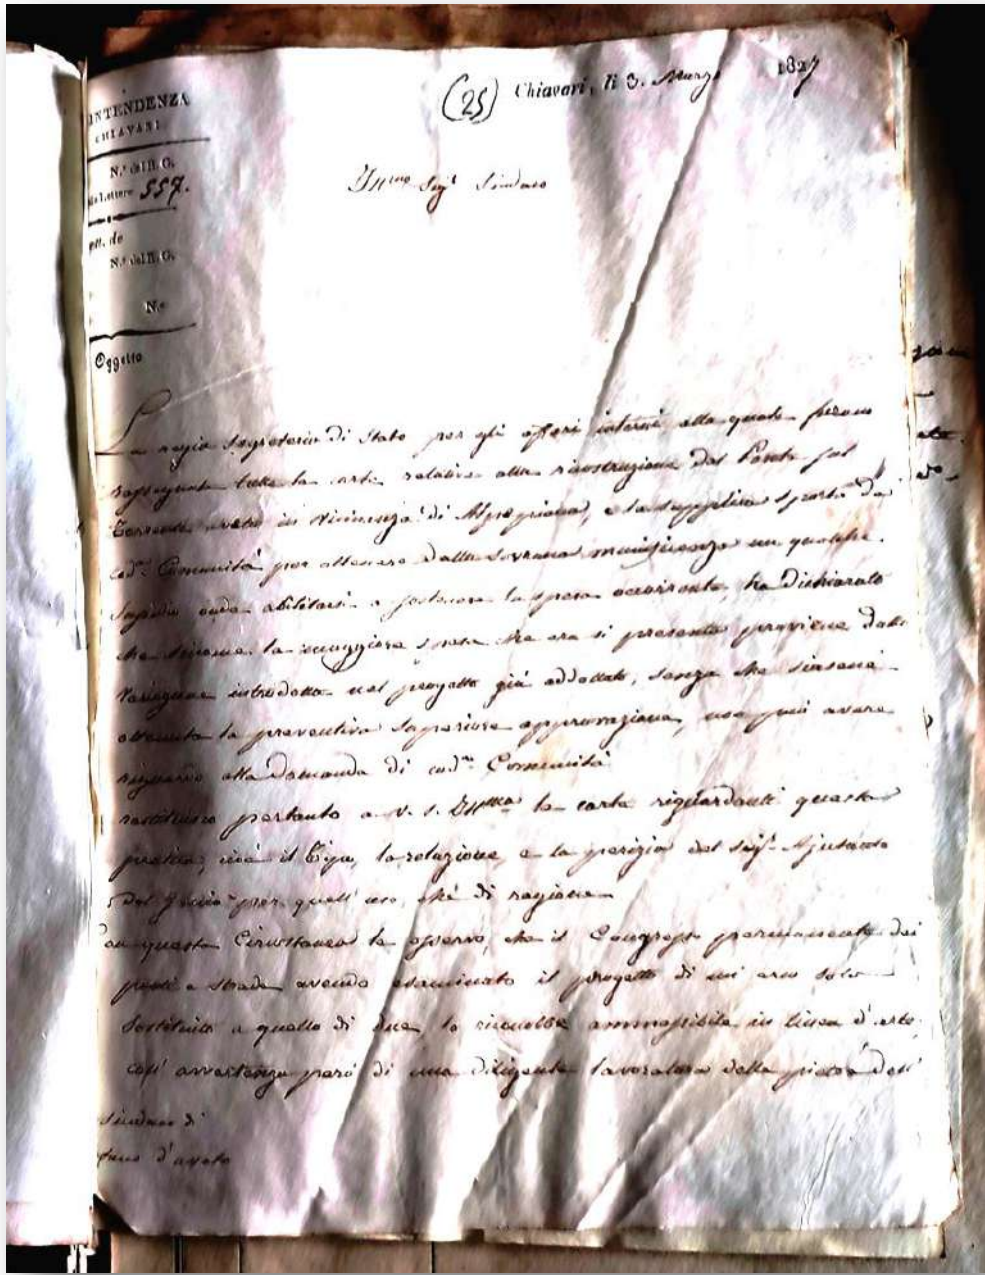 INTENDENZA
CHIAVARI
(25) Chiavari, li 3. Marzo 1827
N.º del R. G.
Lettere 557.
N.º del R. G.
N.º
Oggetto
Ill.mo Sig.r Sindaco
La regia Segreteria di Stato per gli affari interni alla quale furono
rassegnate tutte le carte relative alla ricostruzione del Ponte sul
Torrente aveto in vicinanza di Alpepiana, e la supplica sporta da
cod.a Comunità per ottenere dalla Sovrana munificenza un qualche
sussidio onde abilitarsi a sostenere la spesa occorrente, ha dichiarato
che siccome la maggiore spesa che ora si presenta proviene dalla
variazione introdotta nel progetto già addottato, senza che siasene
ottenuta la preventiva Superiore approvazione, non può avere
riguardo alla domanda di cod.a Comunità
restituisco pertanto a V. S. Ill.ma le carte riguardanti questa
pratica, cioè il Tipo, la relazione, e la perizia del Sig.r Ajutante
del Genio per quell'uso, che di ragione
questa Circostanza le osservo, che il Congresso permanente dei
ponti e strade avendo esaminato il progetto di un arco solo
sostituito a quello di due lo riconobbe ammessibile in linea d'arte
coll'avvertenza però di una diligente lavoratura delle pietre dell'
Sindaco di
d'aveto